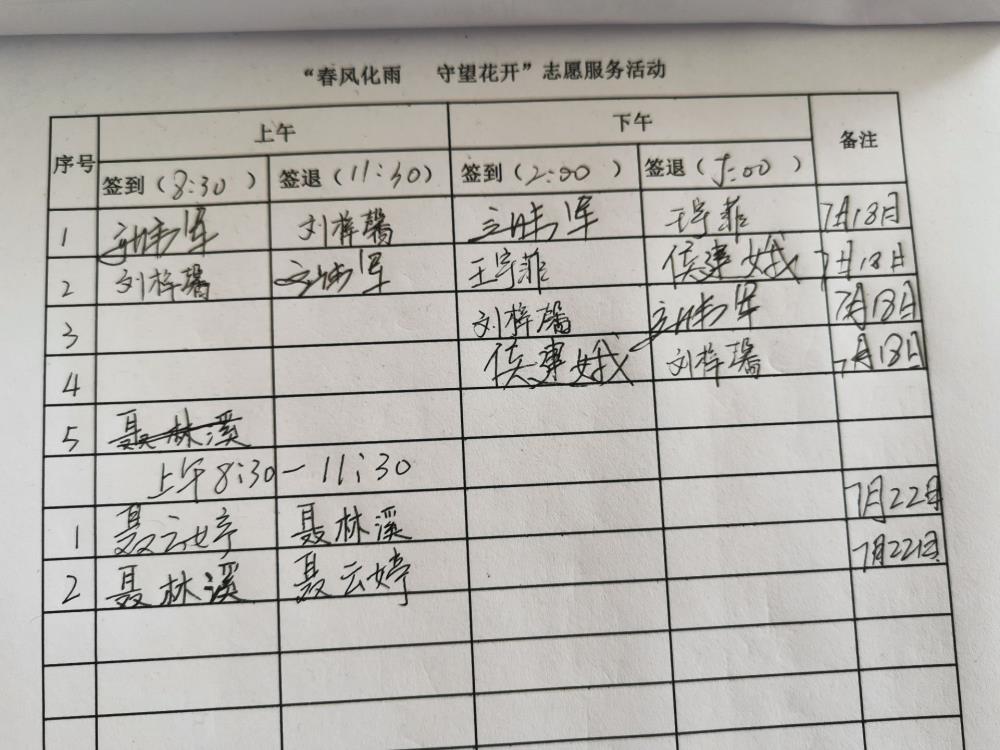 “春风化雨 守望花开”志愿服务活动
序号 上午 下午 备注
签到（8:30） 签退（11:30） 签到（2:00） 签退（5:00）
1 刘梓馨 王宇菲 7月18日
2 刘梓馨 王宇菲 侯建娥 7月18日
3 刘梓馨 7月18日
4 侯建娥 刘梓馨 7月18日
5 聂林溪
上午8:30-11:30
1 聂云婷 聂林溪 7月22日
2 聂林溪 聂云婷 7月22日